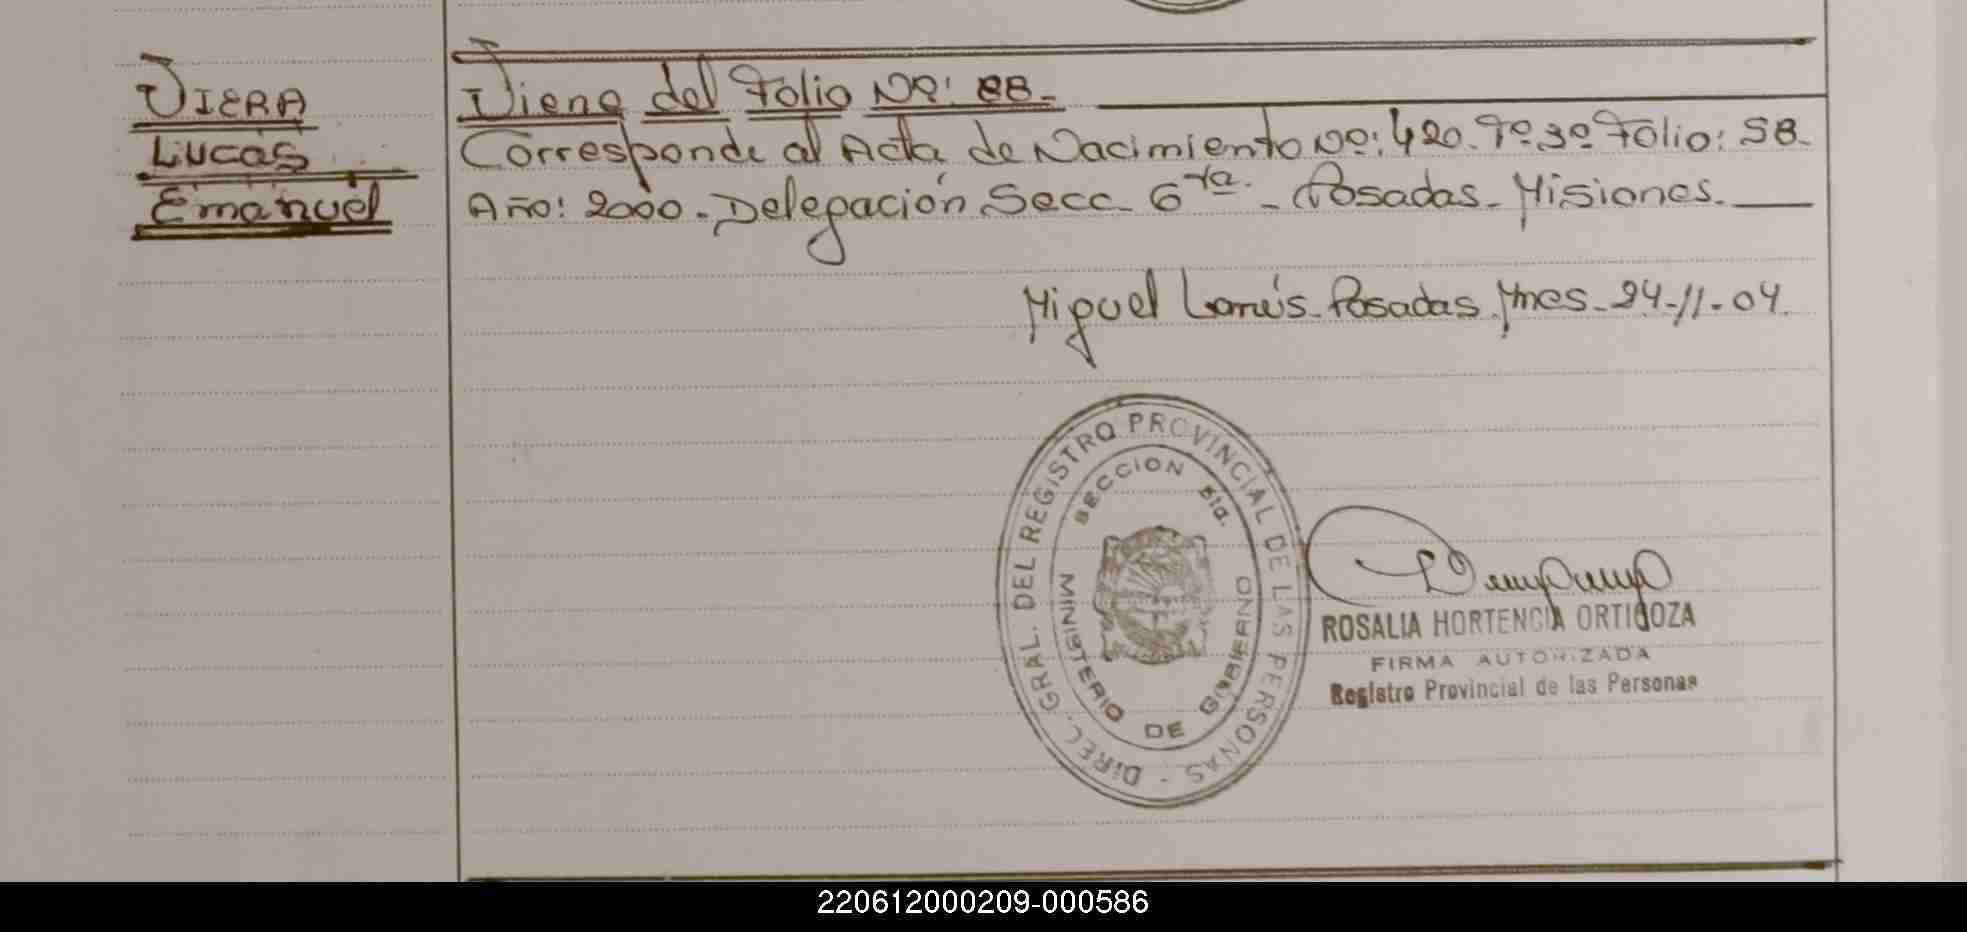 VIERA
Lucas
Emanuel
Viene del Folio Nº: 88.-
Corresponde al Acta de Nacimiento Nº: 420. Tº 3º Folio: 58.
Año: 2000.- Delegación Secc. 6ta. - Posadas - Misiones.
Miguel Lanús - Posadas Mnes - 24-11-04.
DIREC. GRAL. DEL REGISTRO PROVINCIAL DE LAS PERSONAS -
SECCION 6ta.
MINISTERIO DE GOBIERNO
ROSALIA HORTENCIA ORTIGOZA
FIRMA AUTORIZADA
Registro Provincial de las Personas
220612000209-000586